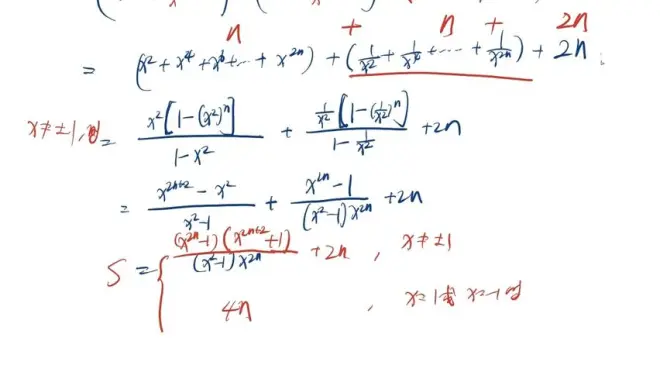 n + n + 2n
= (x² + x⁴ + x⁶ + ... + x²ⁿ) + (1/x² + 1/x⁶ + ... + 1/x²ⁿ) + 2n
x≠±1,时= x²[1-(x²)ⁿ]/1-x² + 1/x²[1-(1/x²)ⁿ]/1-1/x² + 2n
= x²ⁿ⁺²-x²/x²-1 + x²ⁿ-1/(x²-1)x²ⁿ + 2n
S = { (x²ⁿ-1)(x²ⁿ⁺²+1)/(x²-1)x²ⁿ + 2n , x≠±1
4n , x=1或x=-1时